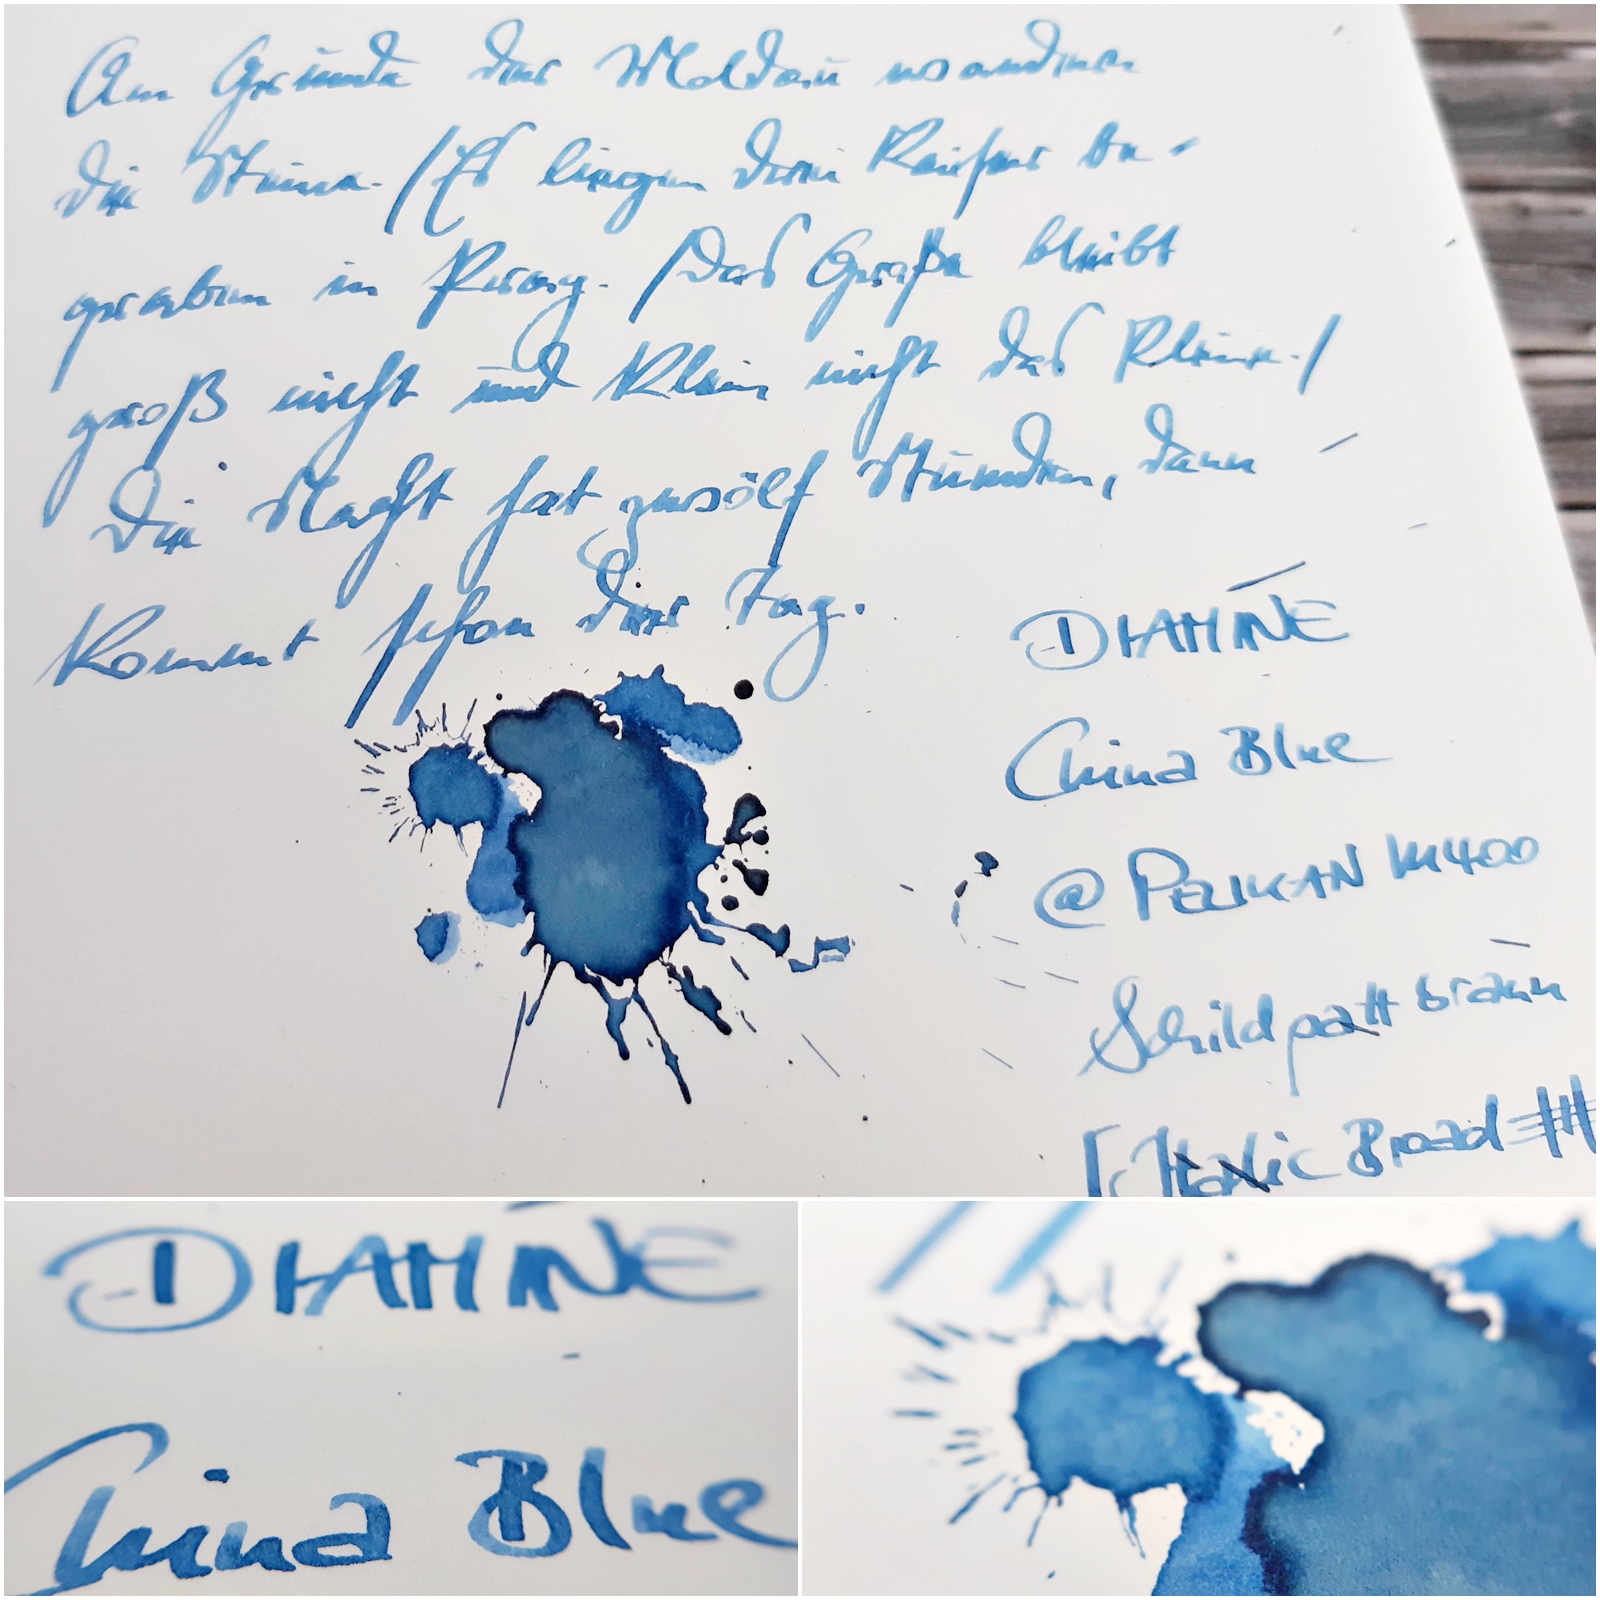 Am Grunde der Moldau wandern
die Steine. / Es liegen drei Kaiser be-
graben in Prag. / Das Große bleibt
groß nicht und klein nicht das Kleine. /
Die Nacht hat zwölf Stunden, dann
kommt schon der Tag.
DIAMINE
China Blue
@ PELIKAN M400
Schildpatt braun
[Italic Broad
DIAMINE
China Blue